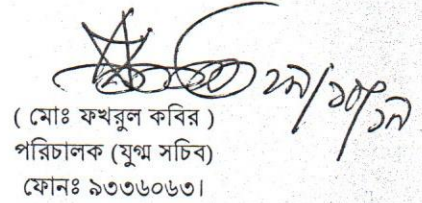 ২৯/১০/১৭
( মোঃ ফখরুল কবির )
পরিচালক (যুগ্ম সচিব)
ফোনঃ ৯৩৩৬০৬৩।